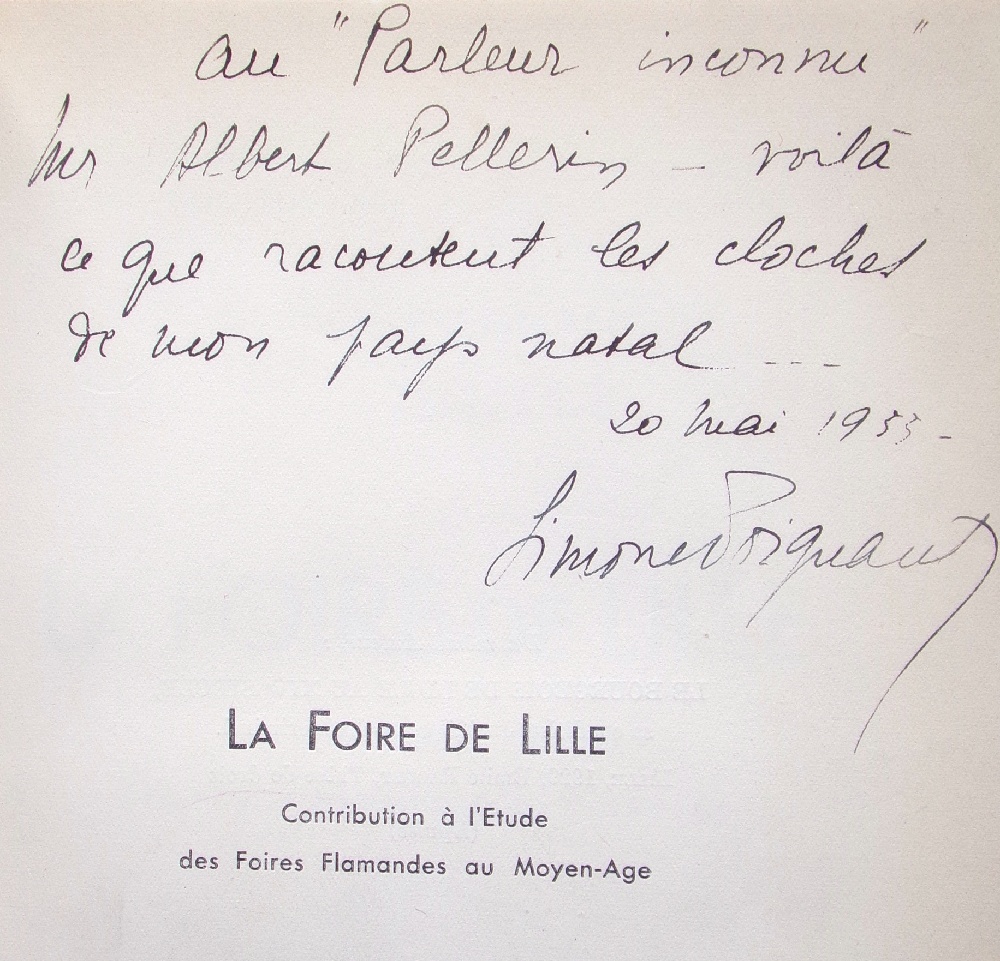 au "Parleur inconnu"
Mr Albert Pellerin - voilà
ce que racontent les cloches
de mon pays natal ...
20 mai 1933 -
Simone Poignant
LA FOIRE DE LILLE
Contribution à l'Etude
des Foires Flamandes au Moyen-Age